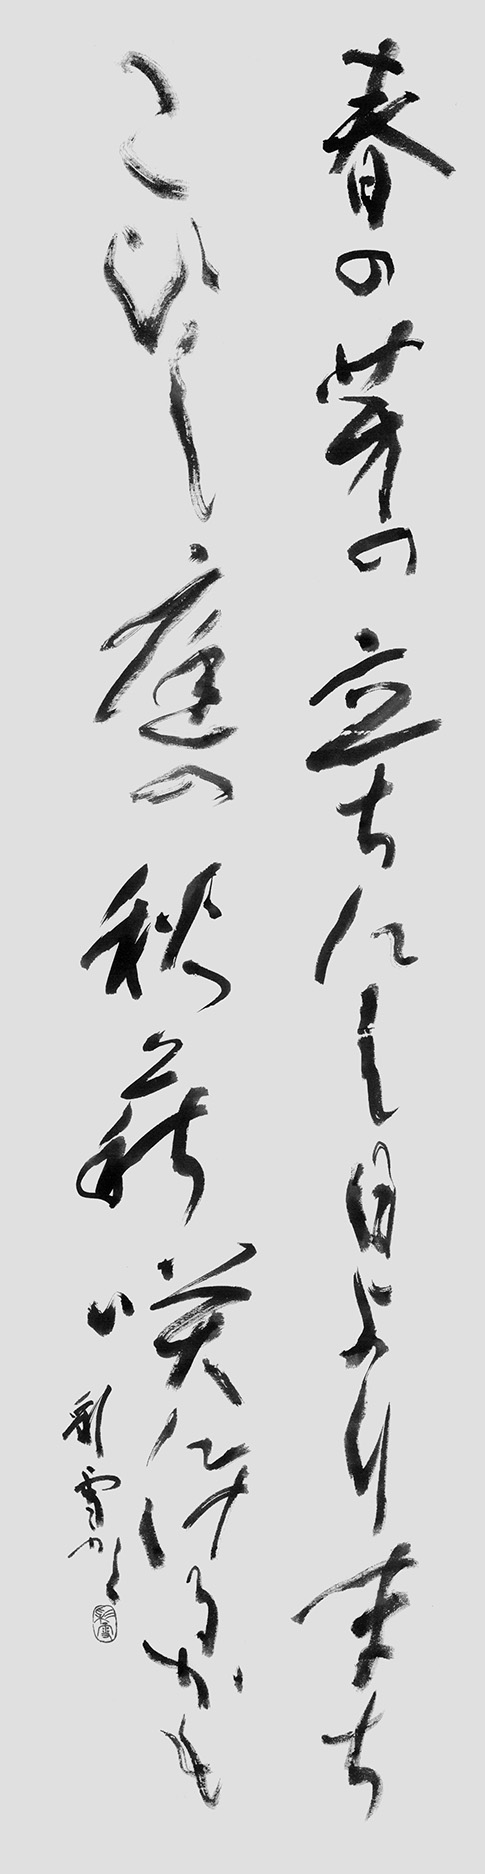 春の芽の立ちにし日より来ち
こひし庭の秋萩咲にけるかも
彩雪かく
彩雪